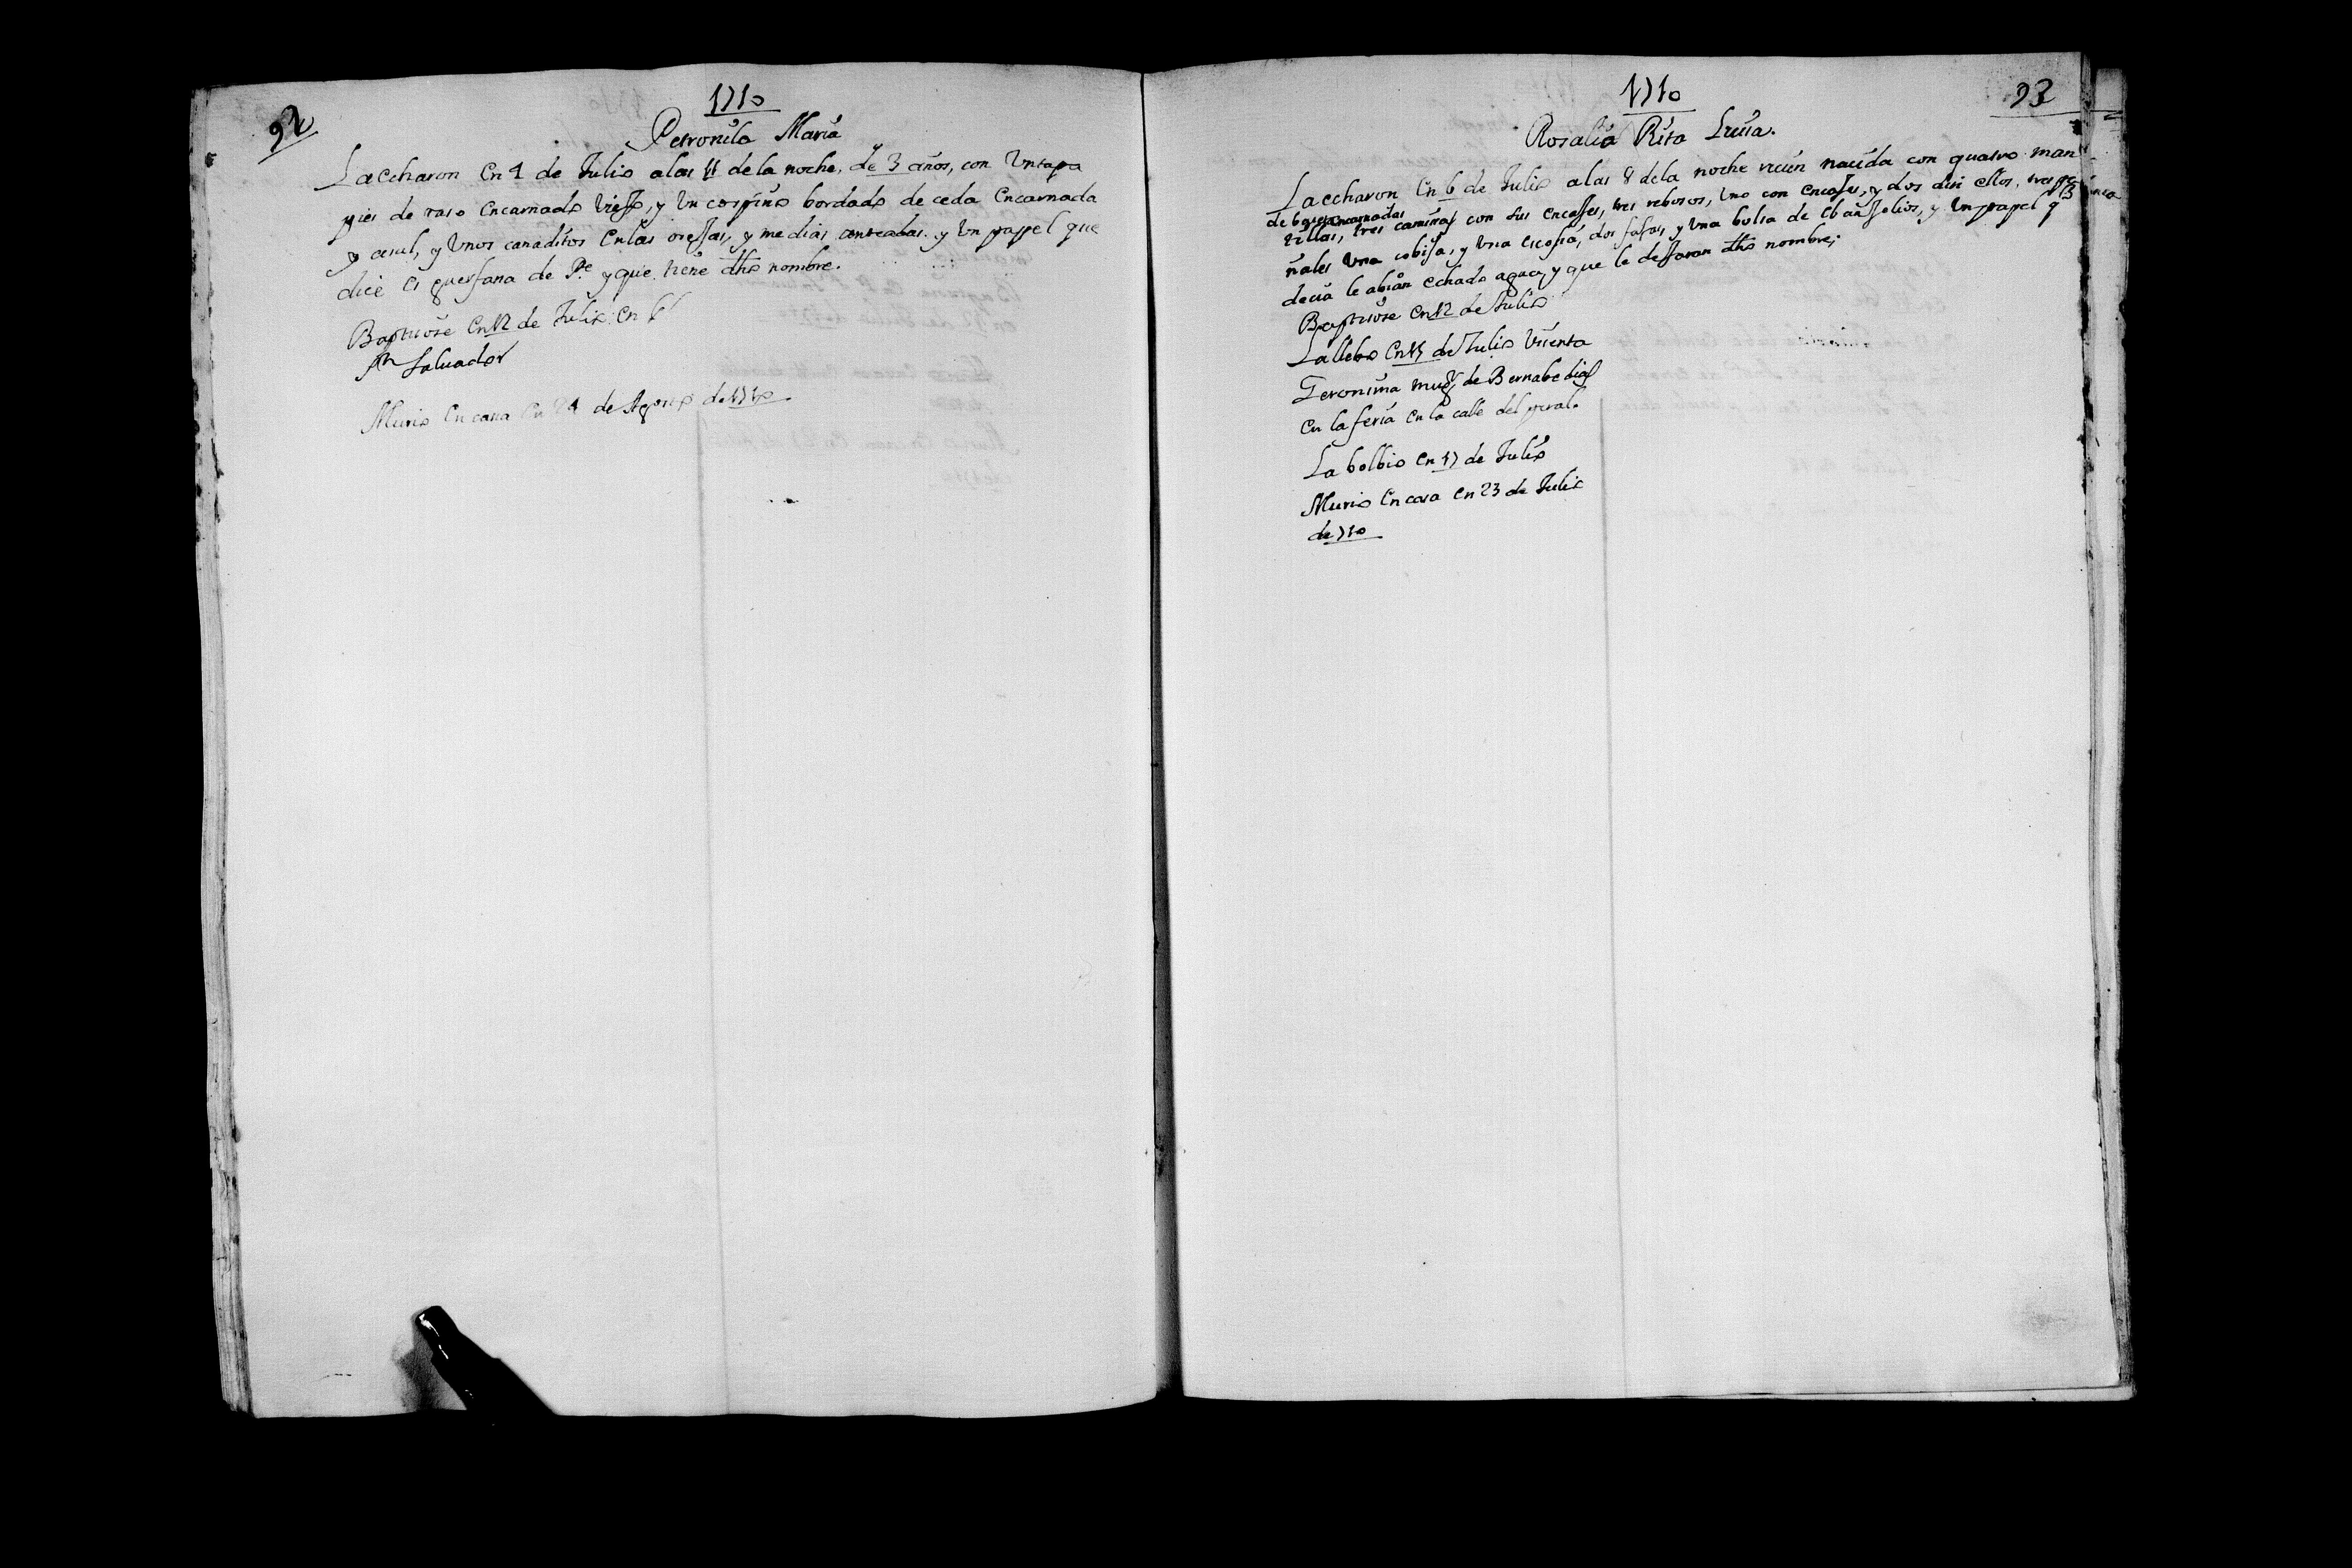 92
1710
Petronila Maria
La echaron En 4 de Iulio alas 11 de la noche, de 3 años, con Un tapa
pies de raso Encarnado Viejo, y Un corpiño bordado de ceda Encarnada
y asul, y Unos canaditos En las orejas, y medias y Un papel que
dice es guerfana de Pe y que tiene dho nombre.
Baptisose En 12 de Iulio En el
Sn Saluador
Murio En casa En 24 de Agosto de 1710
1710
93
Rosalia Rita Luisa.
La echaron En 6 de Iulio alas 8 de la noche recien nacida con quatro man
de bayeta encarnadas
tillas, tres camisas con sus encajes, tres rebosos, Uno con encajes, y dos sin ellos, tres pa
ñales Una cobija, y Una escofia, dos fajas, y Una bolsa de Ebanjelios, y Un papel q
decia le abian echado agua, y que le dejaran dho nombre;
Baptisose En 12 de Iulio
La llebo En 15 de Iulio Visenta
Geronima mugr de Bernabe dias
En la feria En la calle del peral.
La bolbio En 17 de Iulio
Murio En casa En 23 de Iulio
de 710